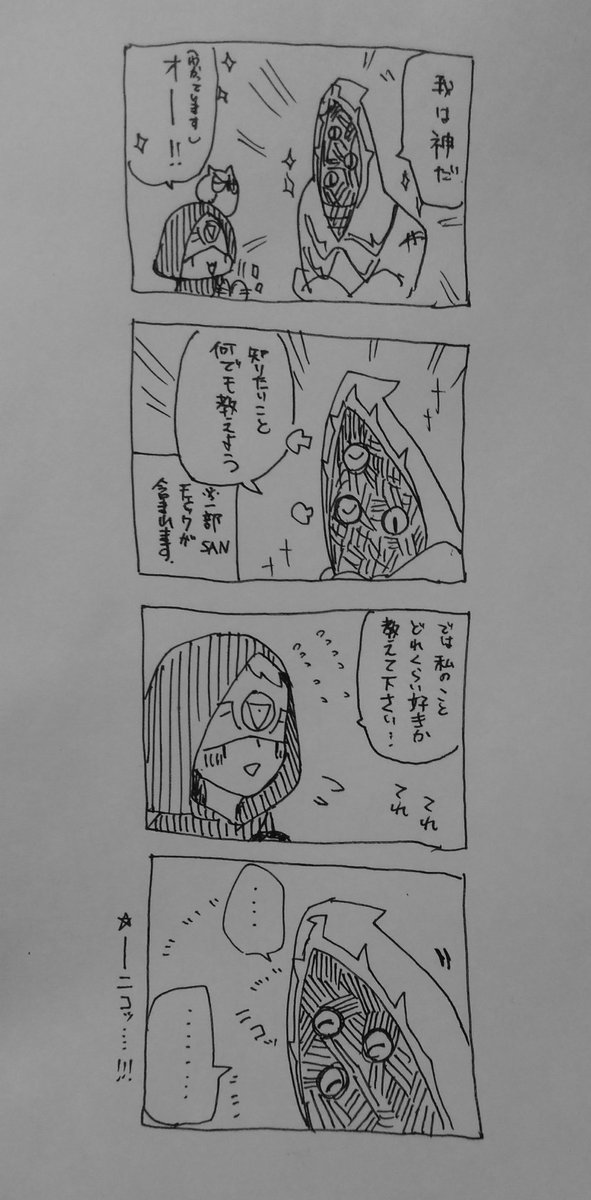 我は神だ
オー!!
知りたいこと
何でも教えよう
※一部SAN
チェックが
含まれます。
では私のこと
どれくらい好きか
教えて下さい…
てれ
てれ
‥‥
ニコッ
‥‥‥‥
☆ーニコッ……!!!